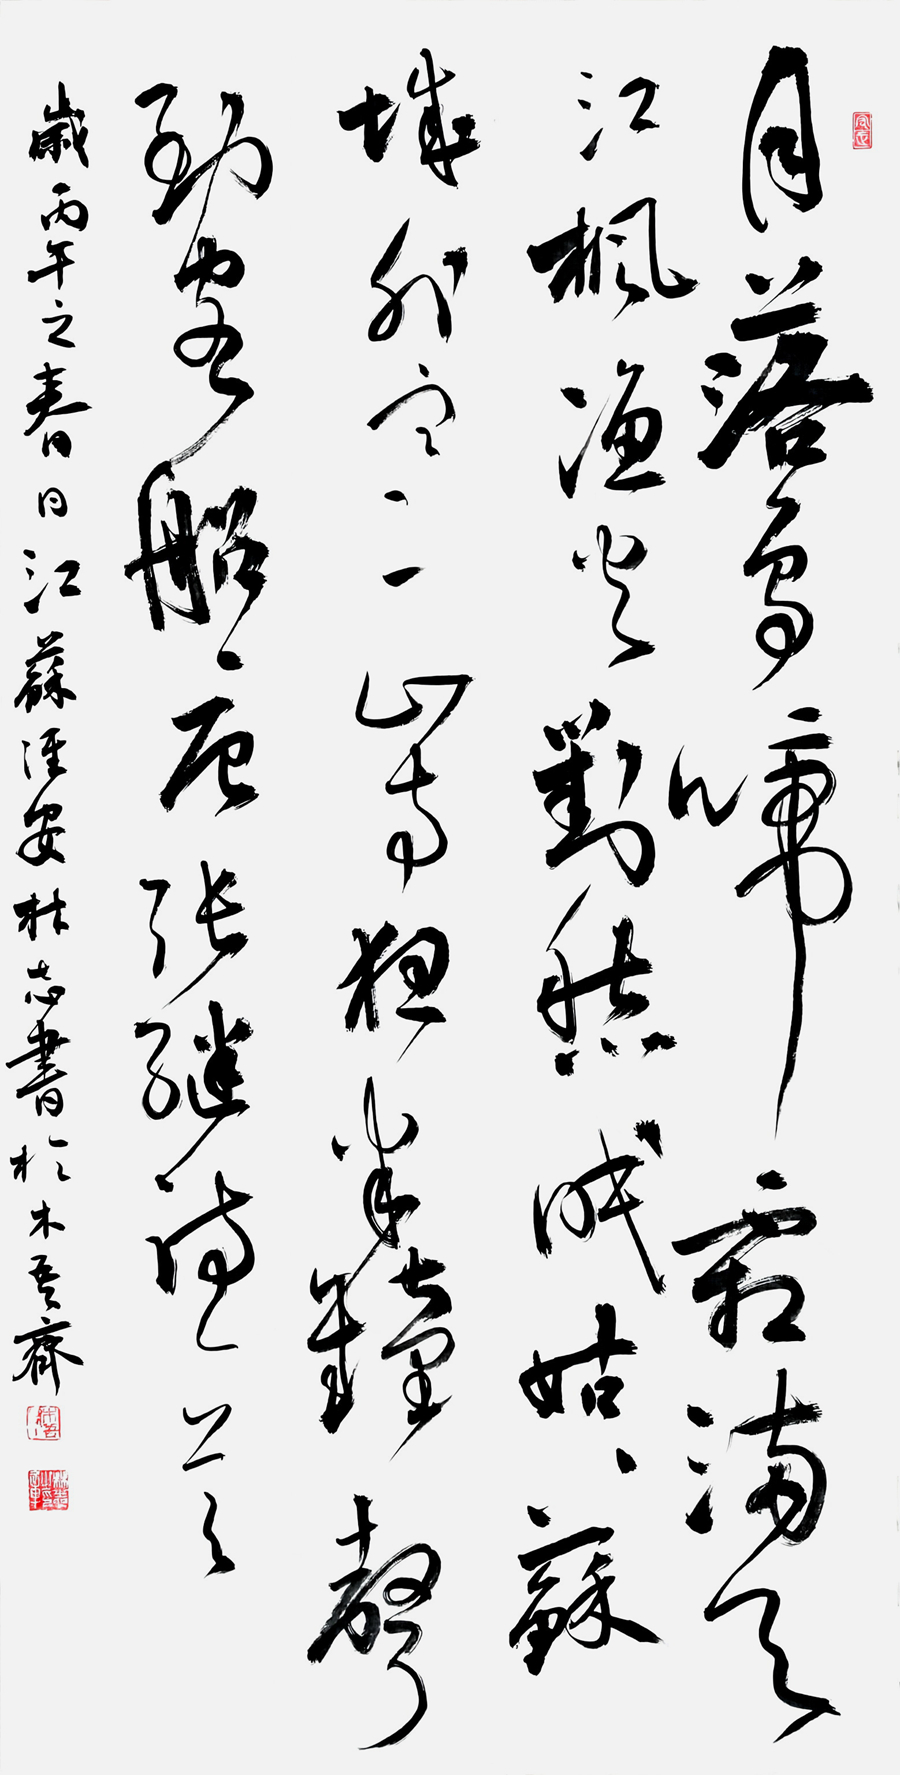 月落烏啼霜滿天
江楓漁火對愁眠姑蘇
城外寒山寺夜半鐘聲
到客船唐張繼詩
歲丙午之春月江蘇淮安林志書於木吾齋